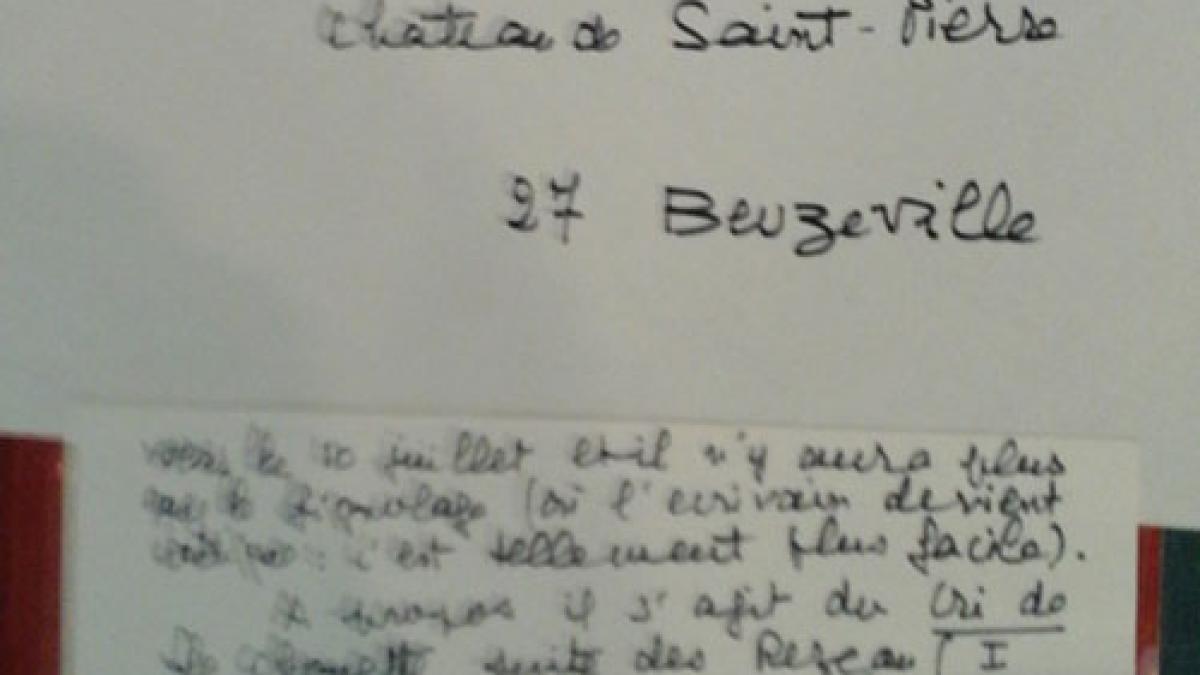 Chateau de Saint-Pierre
27 Beuzeville
le 10 juillet et il n'y aura plus
que le (où l'ecrivain devient
: c'est tellement plus facile).
A propos il s'agit du Cri de
la suite des Reseau I